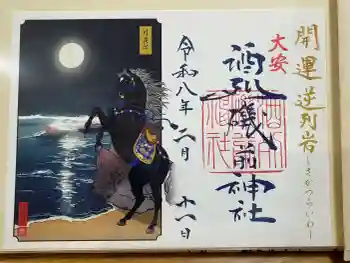 開運 逆列岩 ~さかつらいわ~
大安
酒列磯前神社
令和八年二月十一日